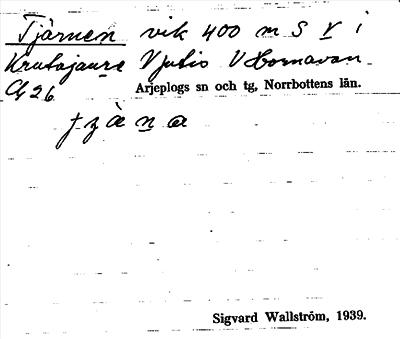 Tjärnen vik 400 m S V i
Krutajaure Vjutis V Hornavan
C26 Arjeplogs sn och tg, Norrbottens län.
tjäna
Sigvard Wallström, 1939.